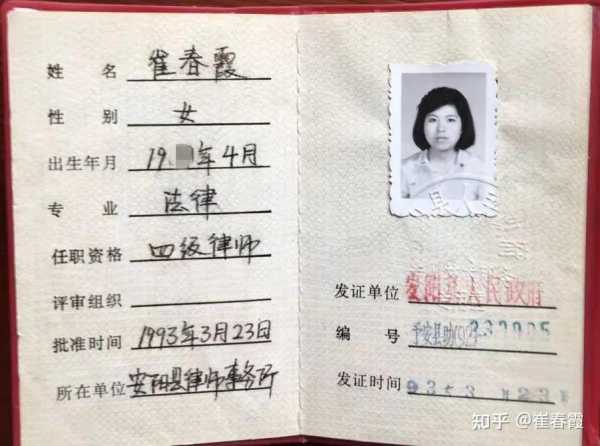 姓 名 崔春霞
性 别 女
出生年月 19 年4月
专 业 法律
任职资格 四级律师
评审组织
批准时间 1993年3月23日
所在单位 安阳县律师事务所
发证单位 安阳县人民政府
编 号
发证时间 93年3月23日
知乎 @崔春霞